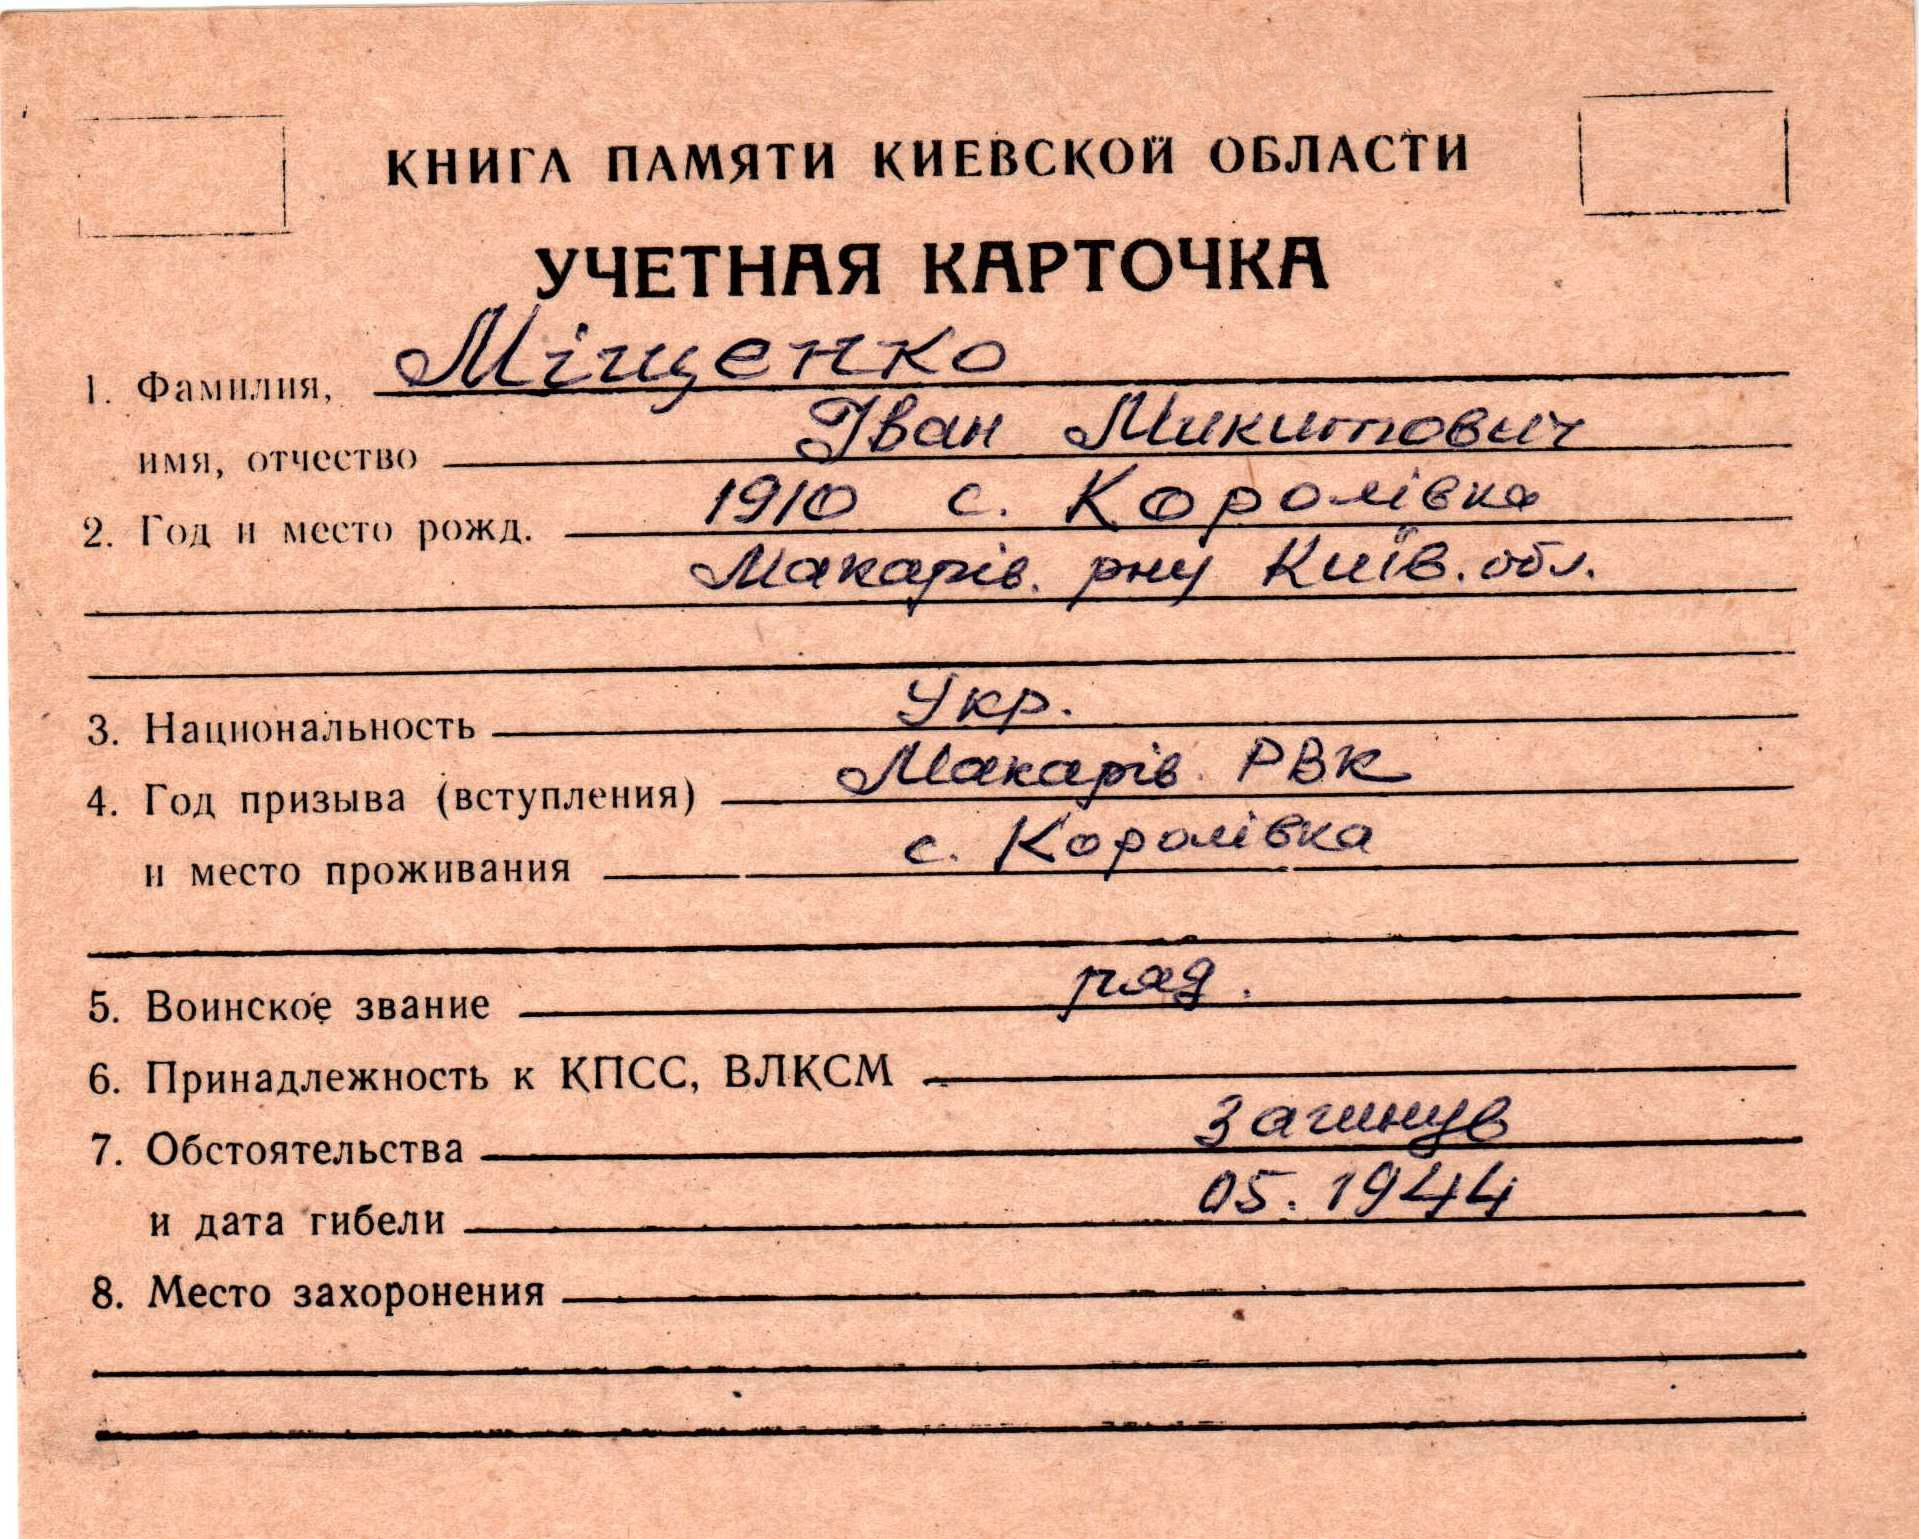 КНИГА ПАМЯТИ КИЕВСКОЙ ОБЛАСТИ
УЧЕТНАЯ КАРТОЧКА
1. Фамилия, Міщенко
имя, отчество Іван Микитович
2. Год и место рожд. 1910 с. Королівка
Макарів. рну Київ. обл.
3. Национальность Укр.
4. Год призыва (вступления) Макарів. РВК
и место проживания с. Королівка
5. Воинское звание ряд.
6. Принадлежность к КПСС, ВЛКСМ
7. Обстоятельства Загинув
и дата гибели 05. 1944
8. Место захоронения